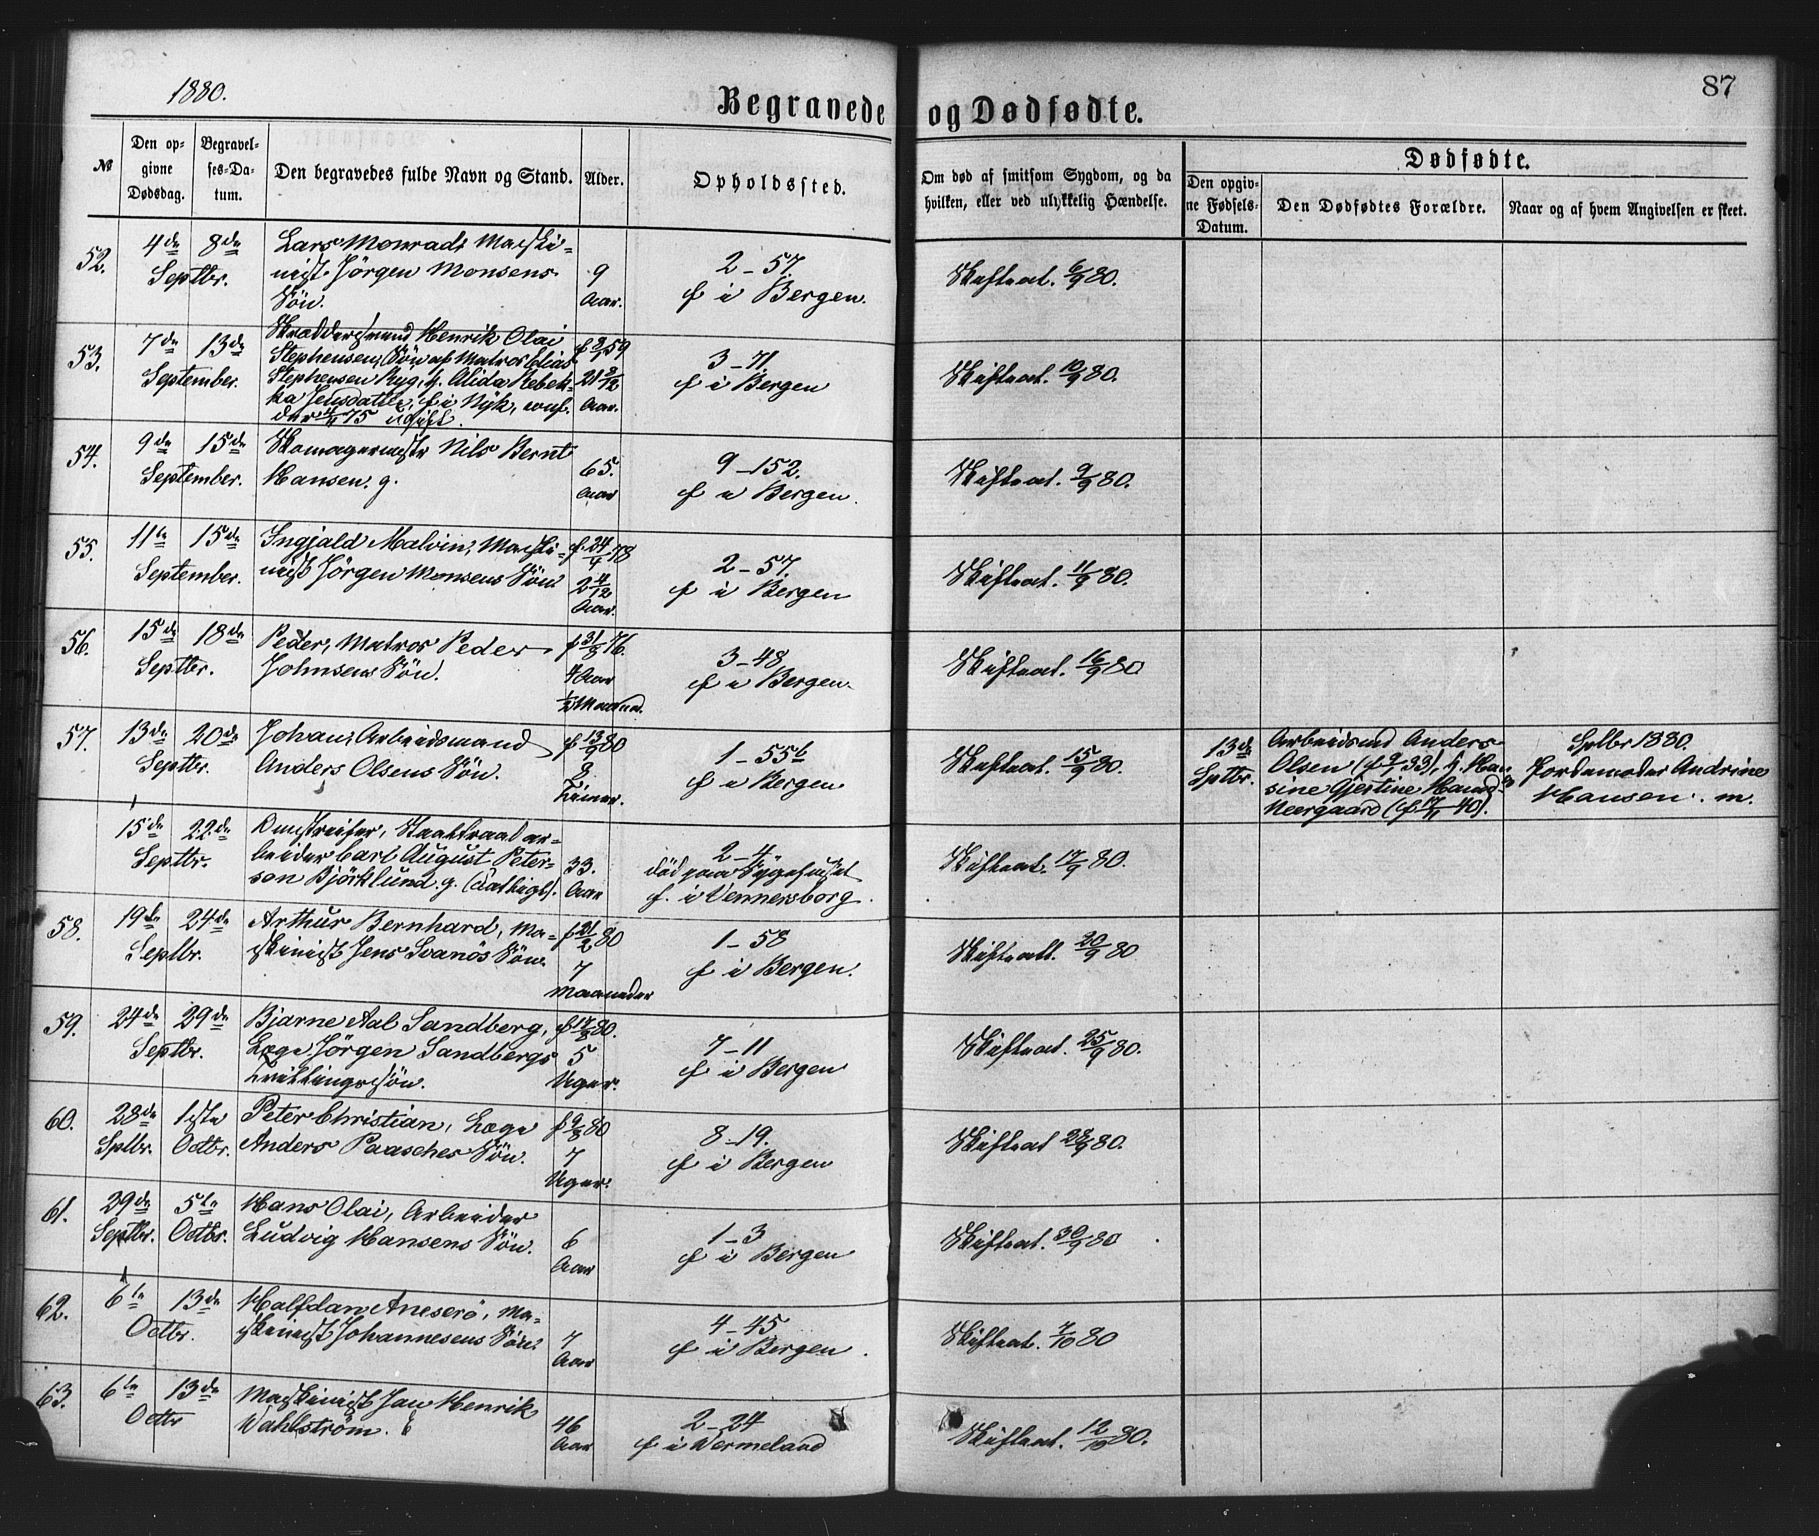 1880.
Begravede og Dødfødte.
87
№
Den op-
givne
Dødsdag.
Begravel-
ses-Da-
tum.
Den begravedes fulde Navn og Stand.
Alder.
Opholdssted.
Om død af smitsom Sygdom, og da
hvilken, eller ved ulykkelig Hændelse.
Dødfødte.
Den opgiv-
ne Fødsels-
Datum.
Den Dødfødtes Forældre.
Naar og af hvem Angivelsen er skeet.
52.
4de 8de
Septbr.
Lars Monrad, Maski-
nist Jörgen Monsens
Sön.
9
Aar.
2-57.
f i Bergen.
Skifteat. 6/9 80.
53.
7de 13de
September.
Skræddersvend Henrik Olai
Stephensen, Sön af Matros Elias
Stephensen Ryg, h. Alida Rebek-
ka Jensdatter, f. i Nyk, conf.
ugift.
21 8/12
Aar.
3-71.
f i Bergen
Skifteat. 10/9 80.
54.
9de 15de
September.
Skomagermester Nils Bernt
Hansen. g.
65.
Aar
9-152.
f i Bergen.
Skifteat. 9/9 80.
55.
11te 15de
September.
Ingjald Malvin, Maski-
nist Jörgen Monsens Sön
f. 24/4 78
2 4/12
Aar.
2-57.
f i Bergen
Skifteat. 11/9 80.
56.
15de 18de
Septbr.
Peder, Matros Peder
Johnsens Sön.
f 31/8 76.
4 Aar
1/2 Maaned.
3-48
f i Bergen.
Skifteat. 16/9 80
57.
13de 20de
Septbr.
Johan, Arbeidsmand
Anders Olsens Sön.
f 13/9 80
8
Timer.
1-55b
f i Bergen
Skifteat. 15/9 80.
13de
Sptbr.
Arbeidsmd Anders
Olsen (f 9/7 33), h. Han-
sine Gjertine
Neergaard
Sptbr 1880.
Jordemoder Andrine
Hansen. m.
15de 22de
Septbr.
Omstreifer,
beider Carl August Peter-
son Björklund. g.
33.
Aar
2-4
död paa Sygehuset
f. i Vennersborg.
Skifteat. 17/9 80.
58.
19de 24de
Septbr.
Arthur Bernhard, Ma-
skinist Jens Svanös Sön.
f 21/2 80
7
Maaneder
1-58
f i Bergen.
Skifteatt. 20/9 80
59.
24de 29de
Septbr.
Bjarne Aal Sandberg,
Læge Jörgen Sandbergs
Trillingssön.
f 17/8 80.
5
Uger.
7-11
f i Bergen
Skifteat. 25/9 80.
60.
28de 1ste
Sptbr. Octbr.
Peter Christian, Læge
Anders Paasches Sön.
f 9/8 80
7
Uger.
8-19.
f i Bergen
Skifteat 29/9 80.
61.
29de 5te
Septbr. Octbr.
Hans Olai, Arbeider
Ludvig Hansens Sön.
6
Aar
1-3
f i Bergen
Skifteat. 30/9 80
62.
6te 13de
Octbr.
Halfdan Aneserö, Ma-
skinist Johannesens Sön.
7
Aar
4-45
f i Bergen.
Skifteat. 7/10 80
63.
6te 13de
Octbr
Maskinist Jan Henrik
Wahlström.
46
Aar
2-24
f i Vermeland
Skifteat. 12/10 80.